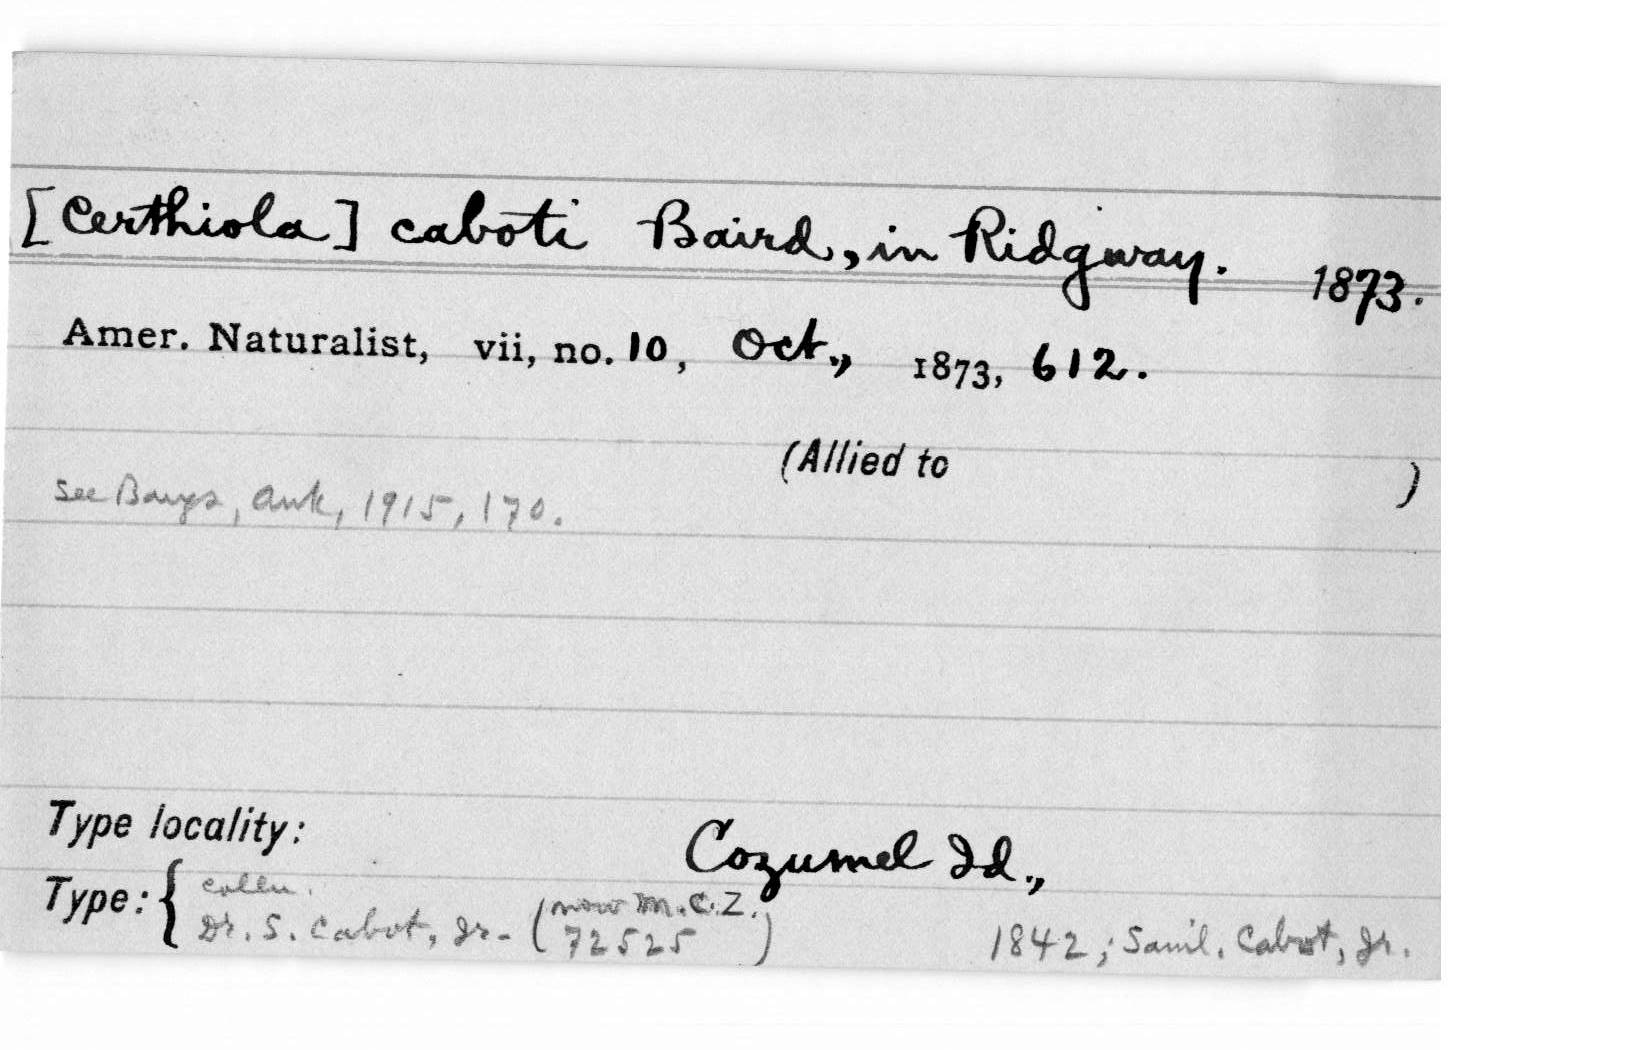 [Certhiola] caboti Baird, in Ridgway. 1873.
Amer. Naturalist, vii, no. 10, Oct., 1873, 612.
(Allied to )
See Bangs, Auk, 1915, 170.
Type locality: Cozumel Id.,
Type: { colln.
Dr. S. Cabot, Jr. (now M.C.Z. 72525) 1842; Saml. Cabot, Jr.